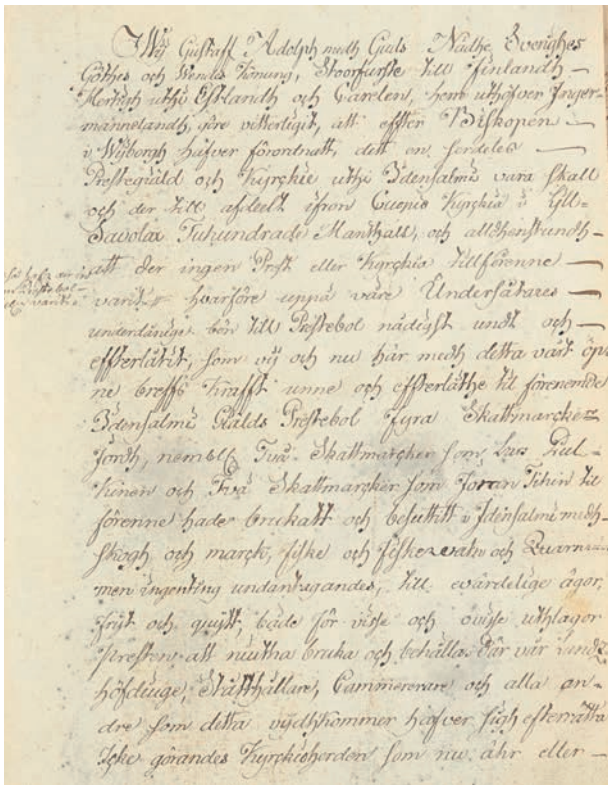 Wij Gustaff Adolph medh Guds Nådhe Sverighes
Göthes och Wendes Konung, Stoorfurste till Finlandh
Hertigh uthi Estlandh och Carelen, herre uthöfver Inger-
mannelandh, göre vitterligit, att effter Biskopen
i Wijborgh hafver förordnatt, dett en serdeles
Prestegiäld och Kyrckie uthi Idensalmi vara skall
och der till afdeelt ifrån Cuopio Kyrckia i Yll-
Savolax Tuhundrade Manthall, och alldhenstundh
att der ingen Prest eller Kyrckia tillförenne
varit hvarföre uppå våre Undersåtares
underdånige bön till Prestebol nådigst undt och
effterlåtit, som vij och nu här medh detta vårt öp-
ne breffs krafft unne och effterlåthe til förenemde
Idensalmi Giälds Prestebol fyra Skattmarcker
Jordh, nembl. Två Skattmarcker som Lars
kinen och Två Skattmarcker som Jöran Tihin til
förenne hade brukatt och besuttitt i Idensalmi medh
skogh och marck, fiske och fiskevatn och Quarn
men ingenting undantagandes, till evärdelige ägor,
frijt och quijtt, både för visse och ovisse uthlagor
Presten att niutha bruka och behålla. Där vår Landz
höfdinge, Ståtthållare, Cammererare och alla an-
dre som detta vydhkommer hafver sigh efterrätta
Icke görandes Kyrckioherden som nu ähr eller